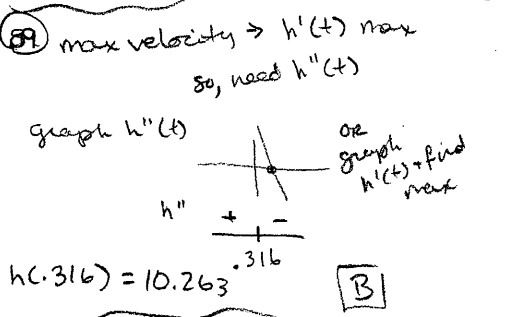 89 max velocity → h'(t) max
so, need h"(t)
graph h"(t)
OR
graph
h'(t) + find
max
h"
+ -
.316
h(.316) = 10.263
B